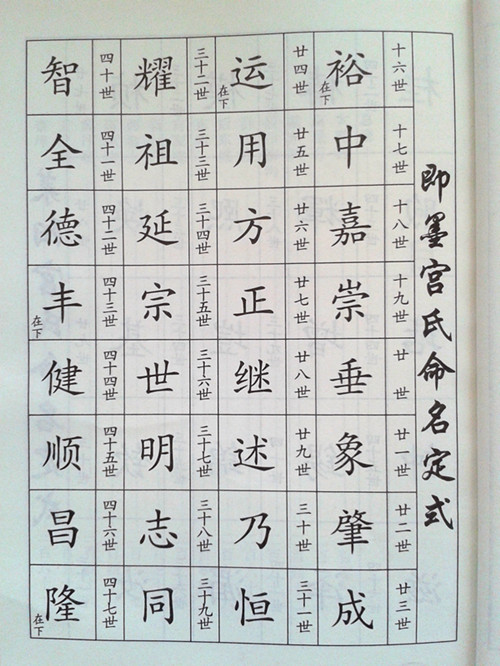 即墨宫氏命名定式
十六世 裕 在下
十七世 中
十八世 嘉
十九世 崇
廿世 垂
廿一世 象
廿二世 肇
廿三世 成
廿四世 运 在下
廿五世 用
廿六世 方
廿七世 正
廿八世 继
廿九世 述
三十世 乃
三十一世 恒
三十二世 耀
三十三世 祖
三十四世 延
三十五世 宗
三十六世 世
三十七世 明
三十八世 志
三十九世 同
四十世 智
四十一世 全
四十二世 德
四十三世 丰 在下
四十四世 健
四十五世 顺
四十六世 昌
四十七世 隆 在下